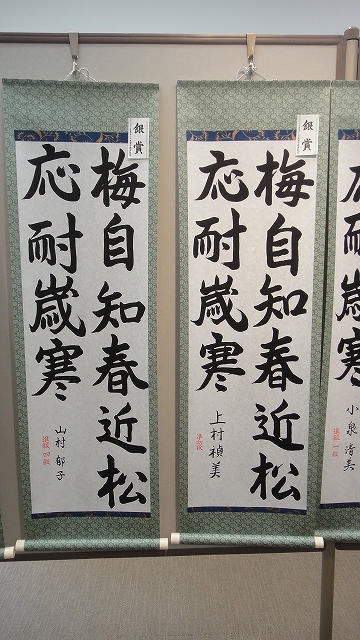 銀賞
梅自知春近松
応耐嵗寒
山村郁子
銀賞
梅自知春近松
応耐嵗寒
上村禎美
応耐嵗寒
小泉清美